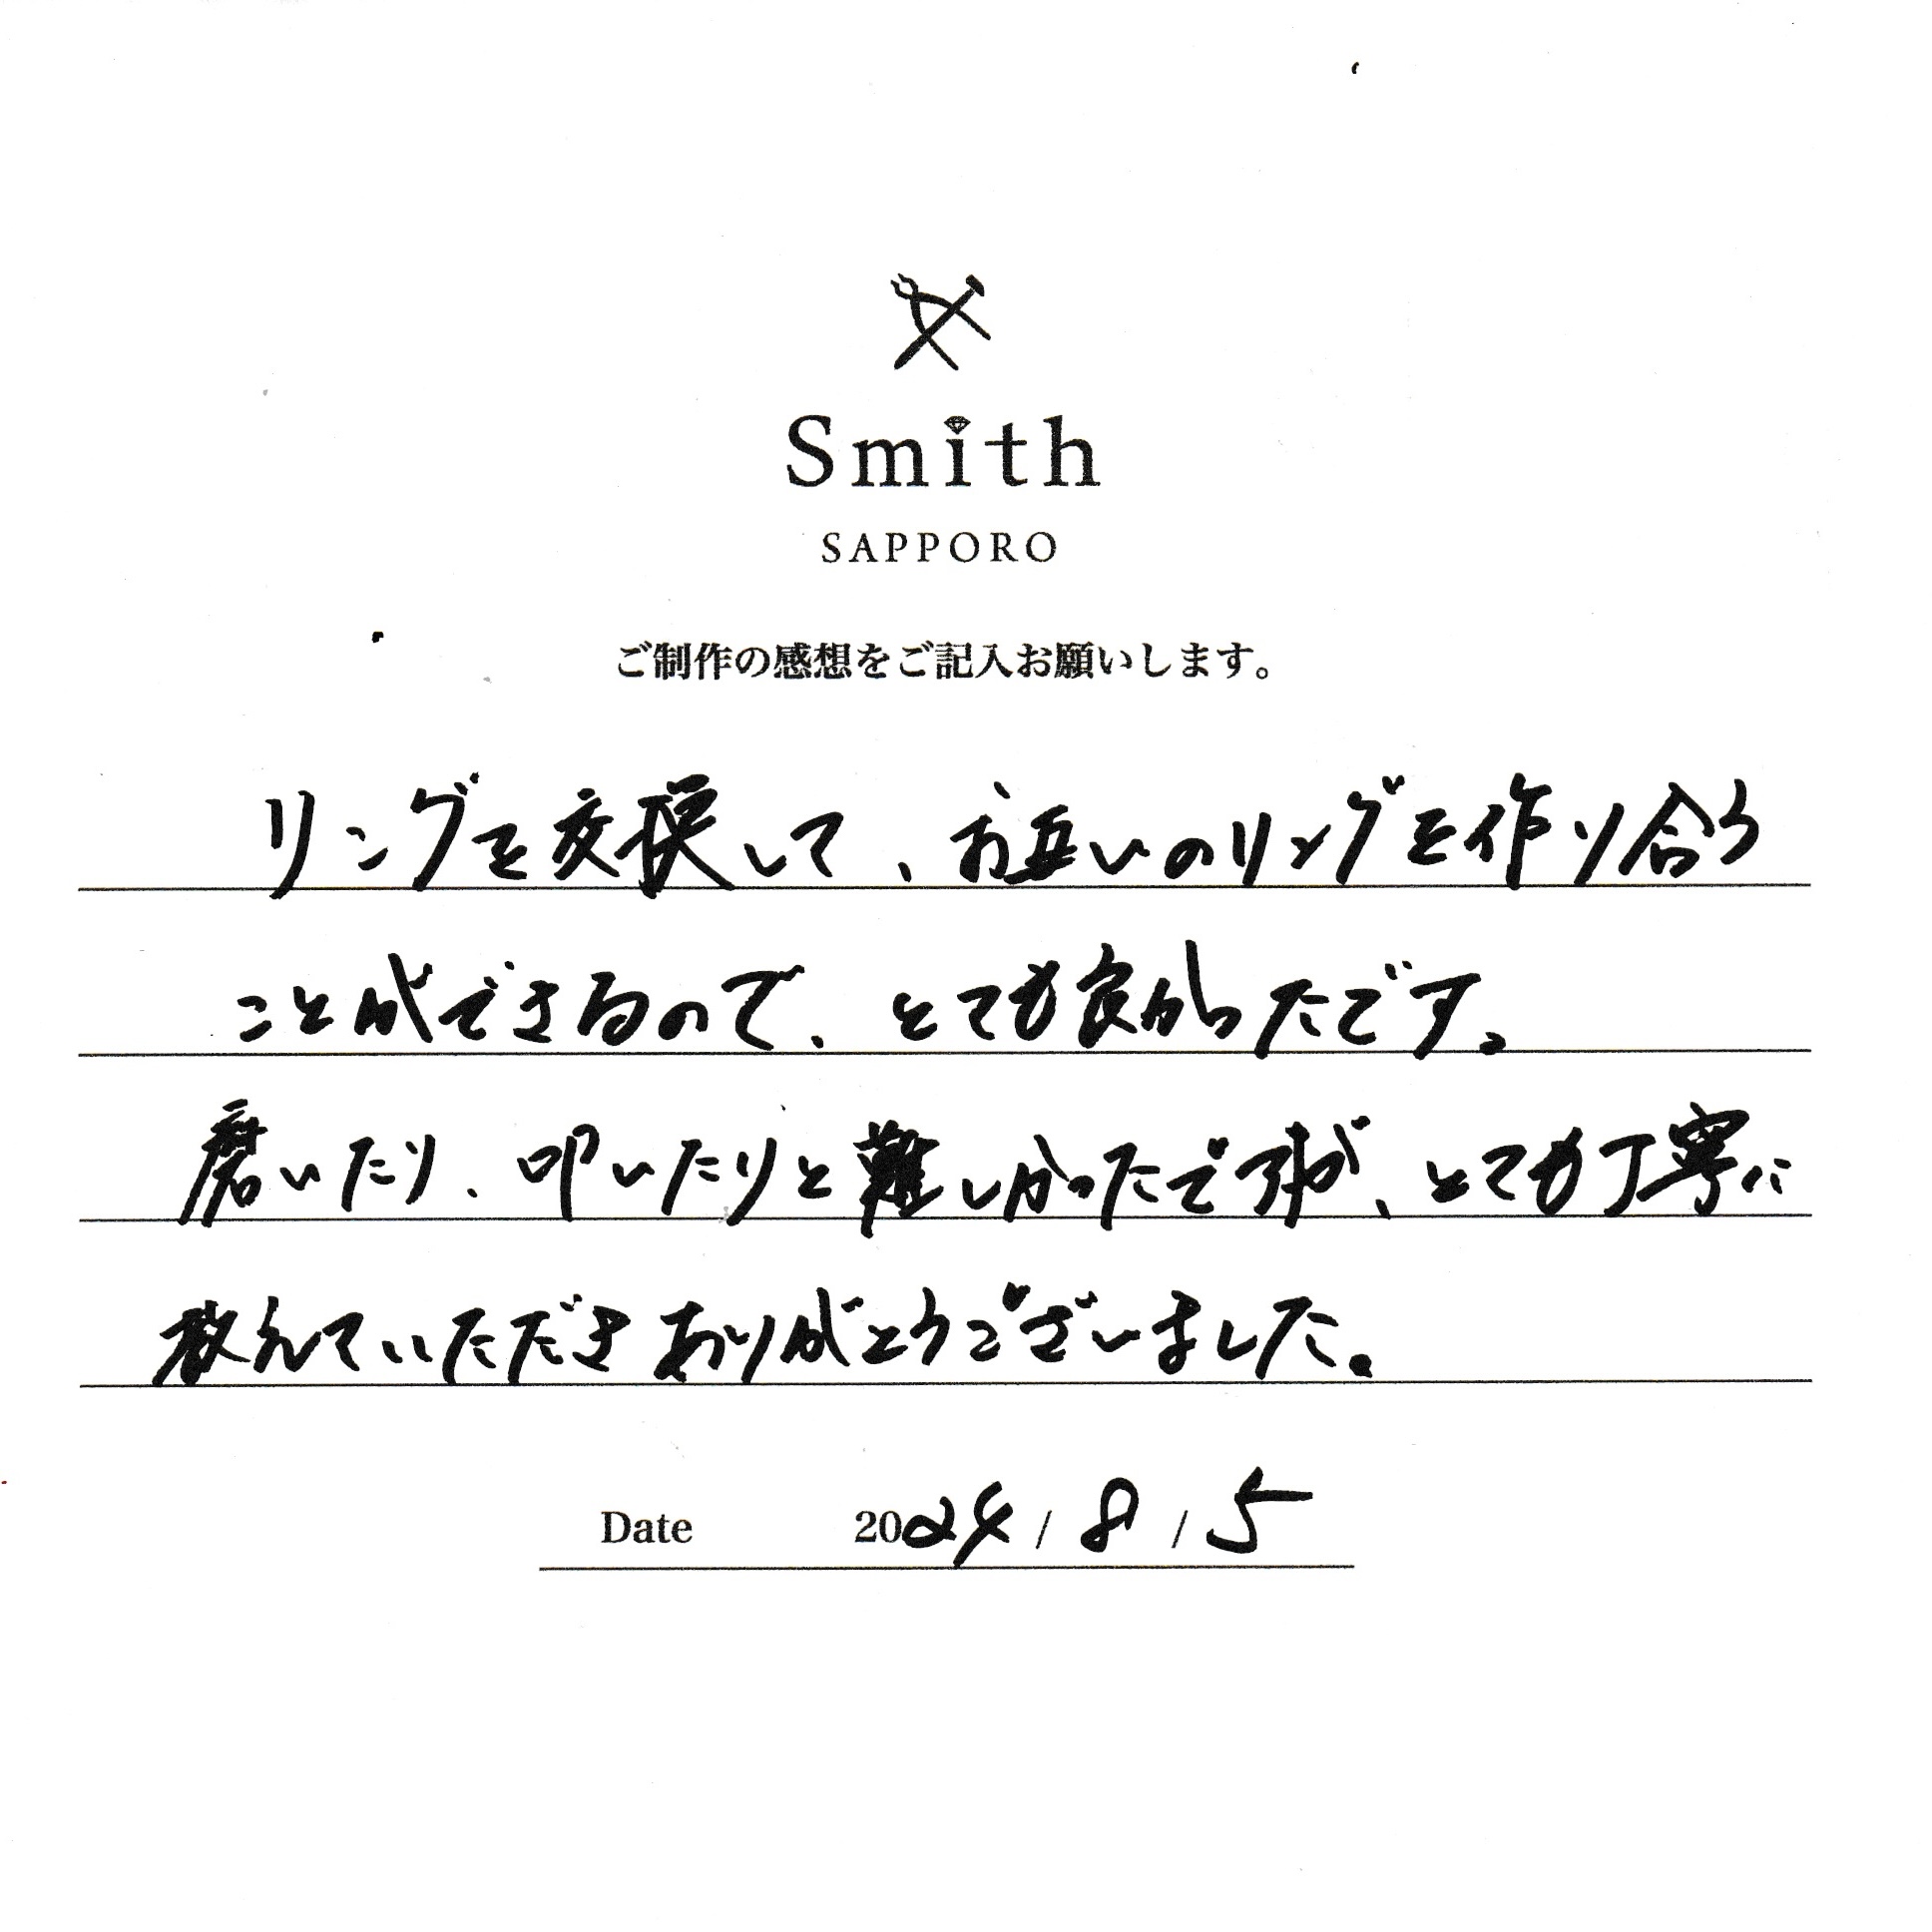 Smith
SAPPORO
ご制作の感想をご記入お願いします。
リングを交換して、お互いのリングを作り合う
ことができるので、とても良かったです。
磨いたり、叩いたりと難しかったですが、とても丁寧に
教えていただきありがとうございました。
Date 2024/8/5